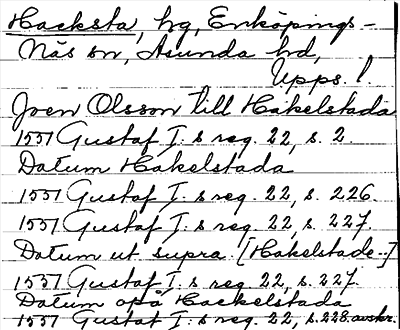 Hacksta, hg, Enköpings-
Näs sn, Åsunda hd,
Upps. l.
Joen Olsson till Hakelstada
1551 Gustaf I:s reg. 22, s. 2.
Datum Hakelstada
1551 Gustaf I:s reg. 22, s. 226.
1551 Gustaf I:s reg. 22, s. 227.
Datum ut supra. [Hakelstade..]
1551 Gustaf I:s reg. 22, s. 227.
Datum opå Hackelstada
1551 Gustaf I:s reg. 22, s. 228. avskr.